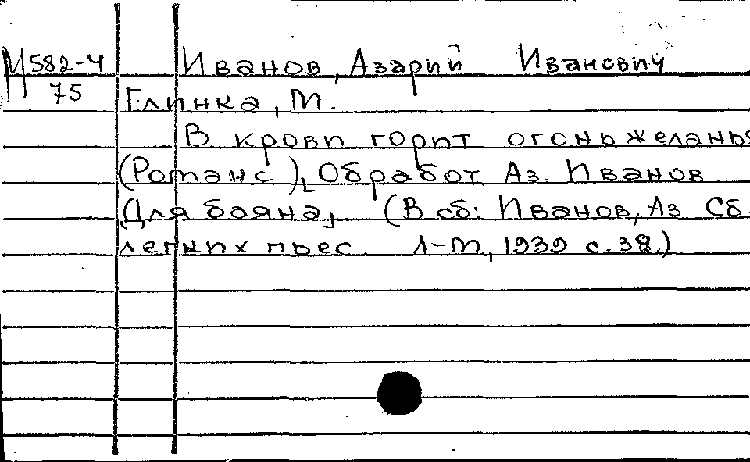 М582-4 Иванов, Азарий Иванович
75 Глинка, М.
В крови горит огонь желанья
(Романс), Обработ Аз. Иванов
Для баяна, (В сб: Иванов, Аз Сб
легких пьес Л-М, 1939 с. 38.)